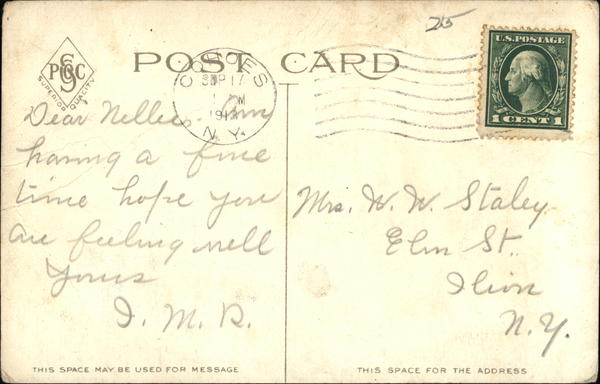 25
S
PCC
SUPERIOR QUALITY
POST CARD
COHOES
SEP 17
M
N.Y.
U.S. POSTAGE
1 CENT 1
Dear Nellie - Am
having a fine
time hope you
are feeling well
Yours
I. M. R.
Mrs. W. W. Staley
Elm St.
Ilion
N.Y.
THIS SPACE MAY BE USED FOR MESSAGE
THIS SPACE FOR THE ADDRESS